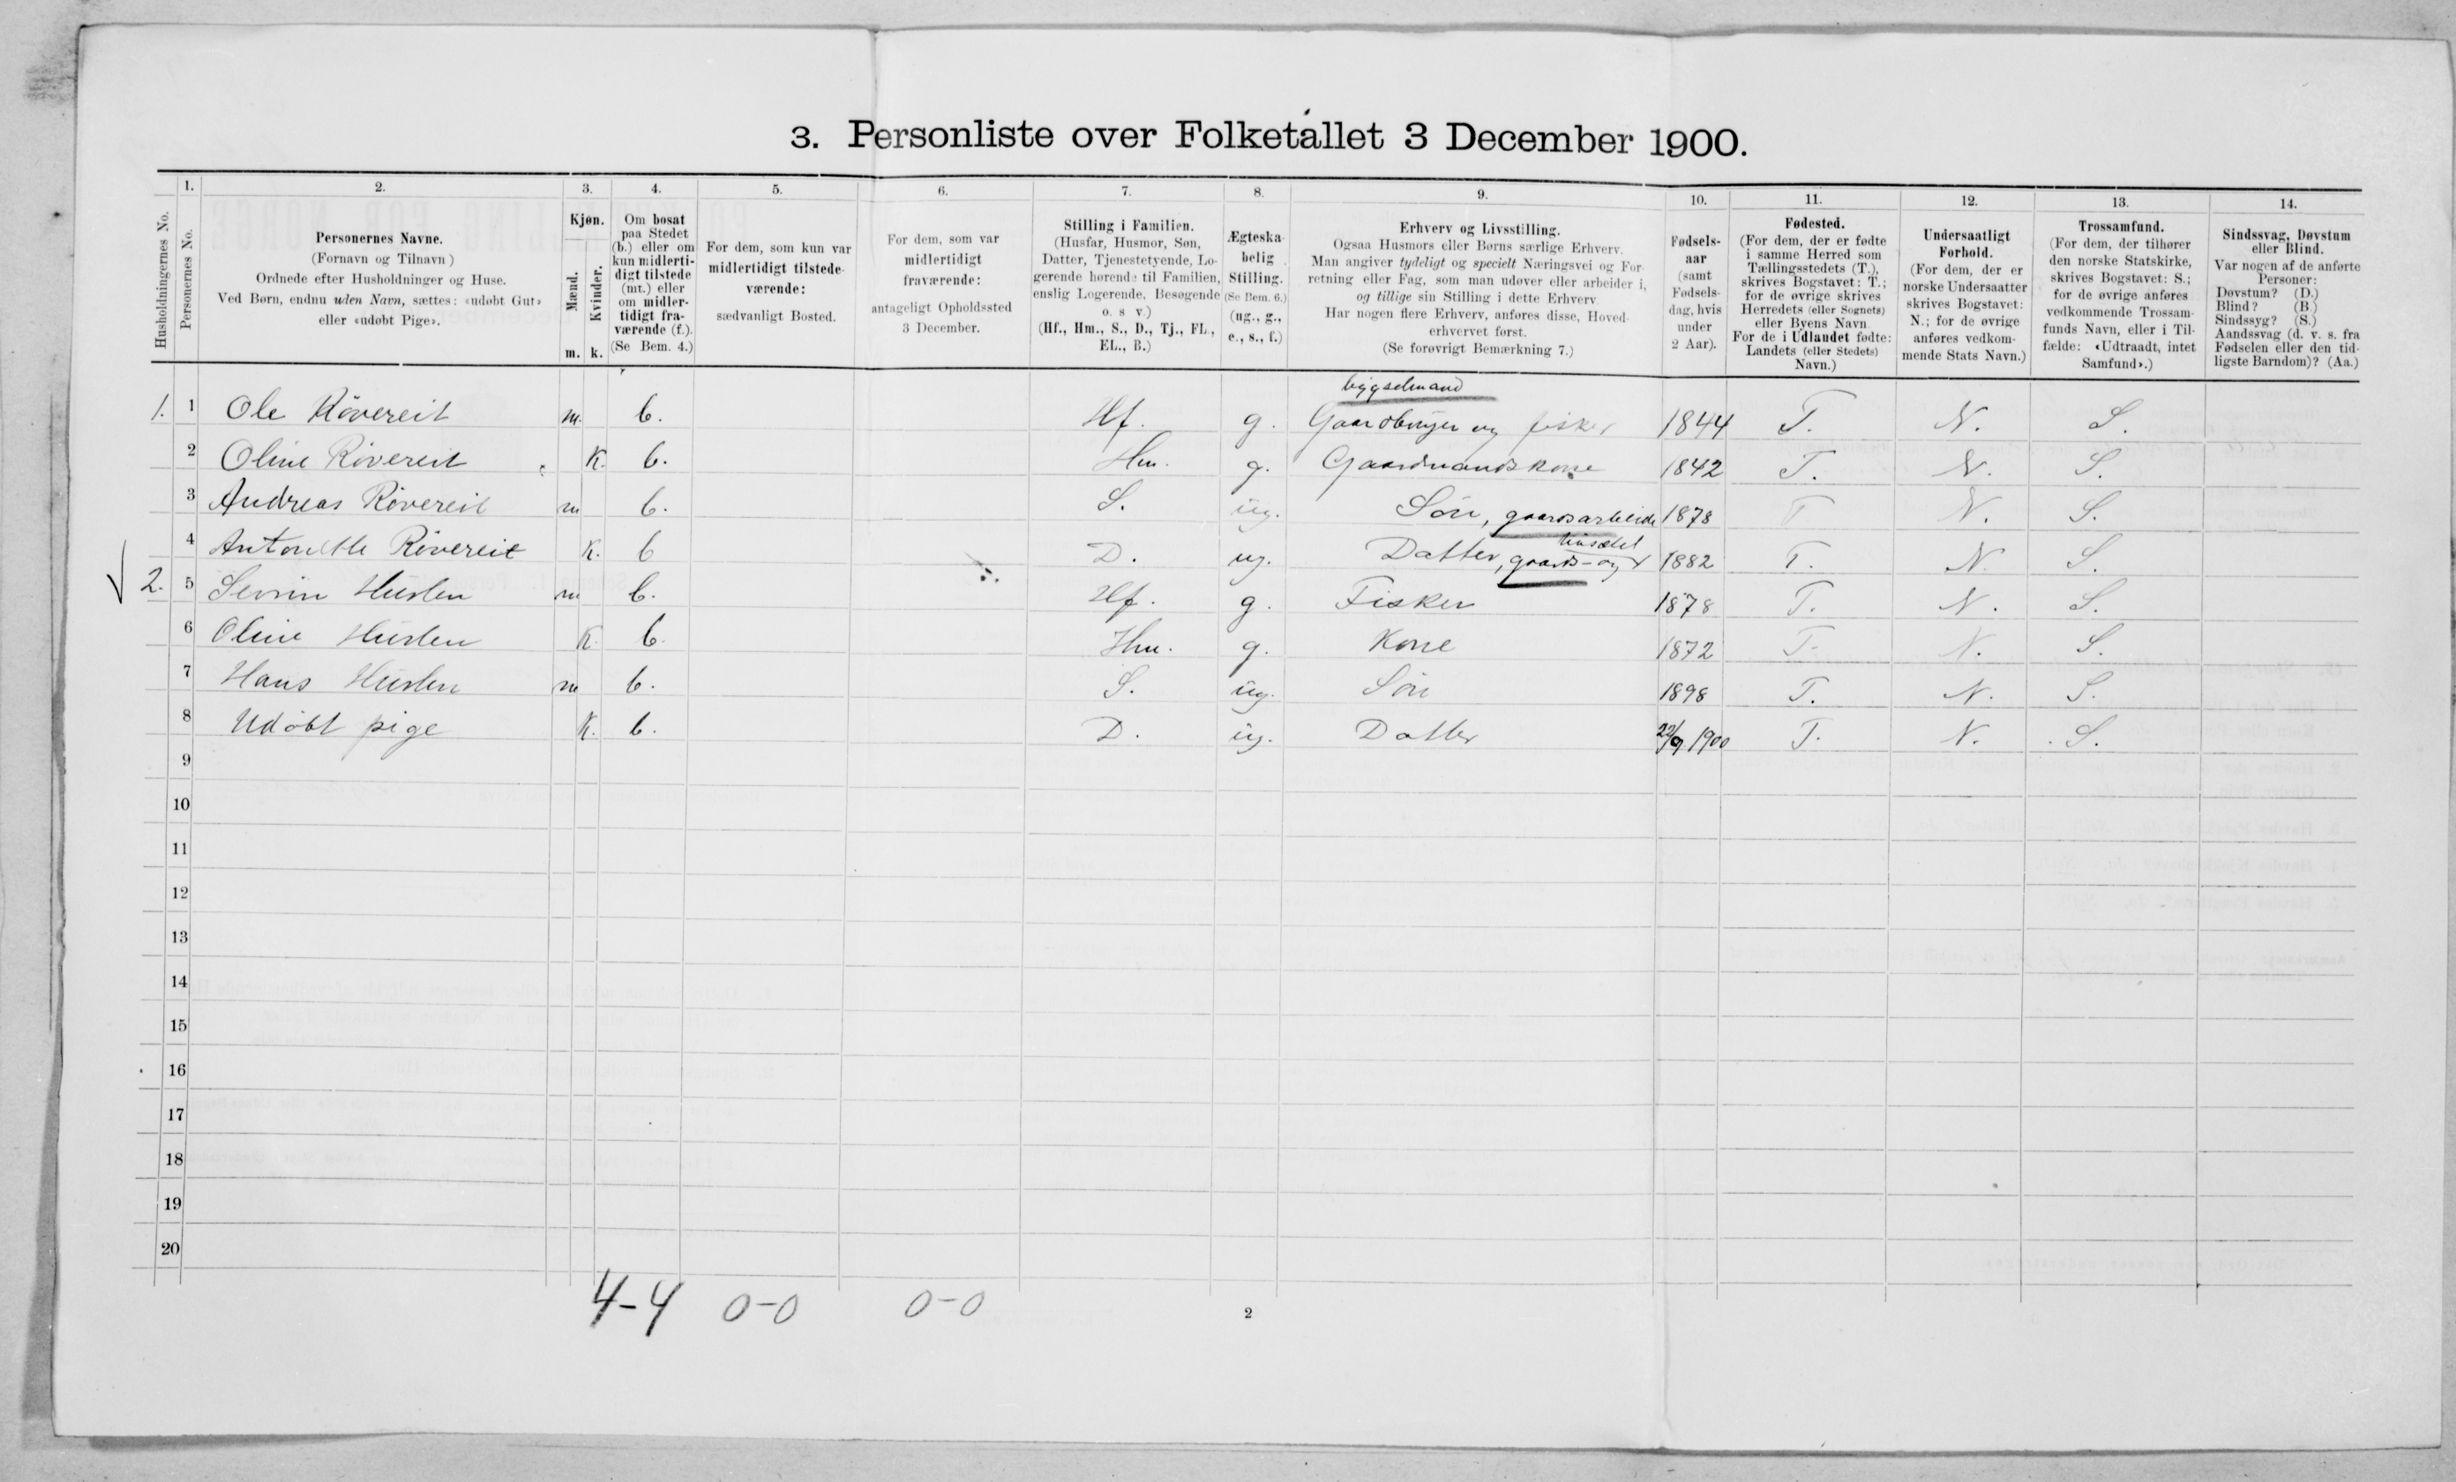 3. Personliste over Folketallet 3 December 1900.
Husholdningernes No.
1.
Personernes No.
2.
Personernes Navne.
(Fornavn og Tilnavn)
Ordnede efter Husholdninger og Huse.
Ved Børn, endnu uden Navn, sættes: «udøbt Gut»
eller «udøbt Pige».
3.
Kjøn.
Mænd.
Kvinder.
m. k.
4.
Om bosat
paa Stedet
(b.) eller om
kun midlerti-
digt tilstede
(mt.) eller
om midler-
tidigt fra-
værende (f.).
(Se Bem. 4.)
5.
For dem, som kun var
midlertidigt tilstede-
værende:
sædvanligt Bosted.
6.
For dem, som var
midlertidigt
fraværende:
antageligt Opholdssted
3 December.
7.
Stilling i Familien.
(Husfar, Husmor, Søn,
Datter, Tjenestetyende, Lo-
gerende hørende til Familien,
enslig Logerende, Besøgende
o. s v.)
(Hf., Hm., S., D., Tj., FL.,
EL., B.)
8.
Ægteska-
belig
Stilling.
(Se Bem. 6.)
(ug., g.,
e., s., f.)
9.
Erhverv og Livsstilling.
Ogsaa Husmors eller Børns særlige Erhverv.
Man angiver tydeligt og specielt Næringsvei og For-
retning eller Fag, som man udøver eller arbeider i,
og tillige sin Stilling i dette Erhverv.
Har nogen flere Erhverv, anføres disse, Hoved-
erhvervet først.
(Se forøvrigt Bemærkning 7.)
10.
Fødsels-
aar
(samt
Fødsels-
dag, hvis
under
2 Aar).
11.
Fødested.
(For dem, der er fødte
i samme Herred som
Tællingsstedets (T.),
skrives Bogstavet: T.;
for de øvrige skrives
Herredets (eller Sognets)
eller Byens Navn.
For de i Udlandet fødte:
Landets (eller Stedets)
Navn.)
12.
Undersaatligt
Forhold.
(For dem, der er
norske Undersaatter
skrives Bogstavet:
N.; for de øvrige
anføres vedkom-
mende Stats Navn.)
13.
Trossamfund.
(For dem, der tilhører
den norske Statskirke,
skrives Bogstavet: S.;
for de øvrige anføres
vedkommende Trossam-
funds Navn, eller i Til-
fælde: «Udtraadt, intet
Samfund».)
14.
Sindssvag, Døvstum
eller Blind.
Var nogen af de anførte
Personer:
Døvstum? (D.)
Blind? (B.)
Sindssyg? (S.)
Aandssvag (d. v. s. fra
Fødselen eller den tid-
ligste Barndom)? (Aa.)
bygselmand
1. 1 Ole Rövereit m. b. Hf. g. Gaardbruger og fisker 1844 T. N. S.
2 Oline Rövereit K. b. Hm. g. Gaardmandskone 1842 T. N. S.
3 Andreas Rövereit m b. S. ug. Sön, gaardsarbeide 1878 T N. S.
4 Antonette Rövereit K. b D. ug. Datter, gaards- og 1882 T. N. S.
2. 5 Sevrin Huslen m b. Hf. g. Fisker 1878 T. N. S.
6 Oline Huslen K. b. Hm. g. Kone 1872 T. N. S.
7 Hans Huslen m b. S. ug. Sön 1898 T. N. S.
8 Udöbt pige K. b. D. ug. Datter 22/9 1900 T. N. S.
9
10
11
12
13
14
15
16
17
18
19
20
4-4 0-0 0-0
2